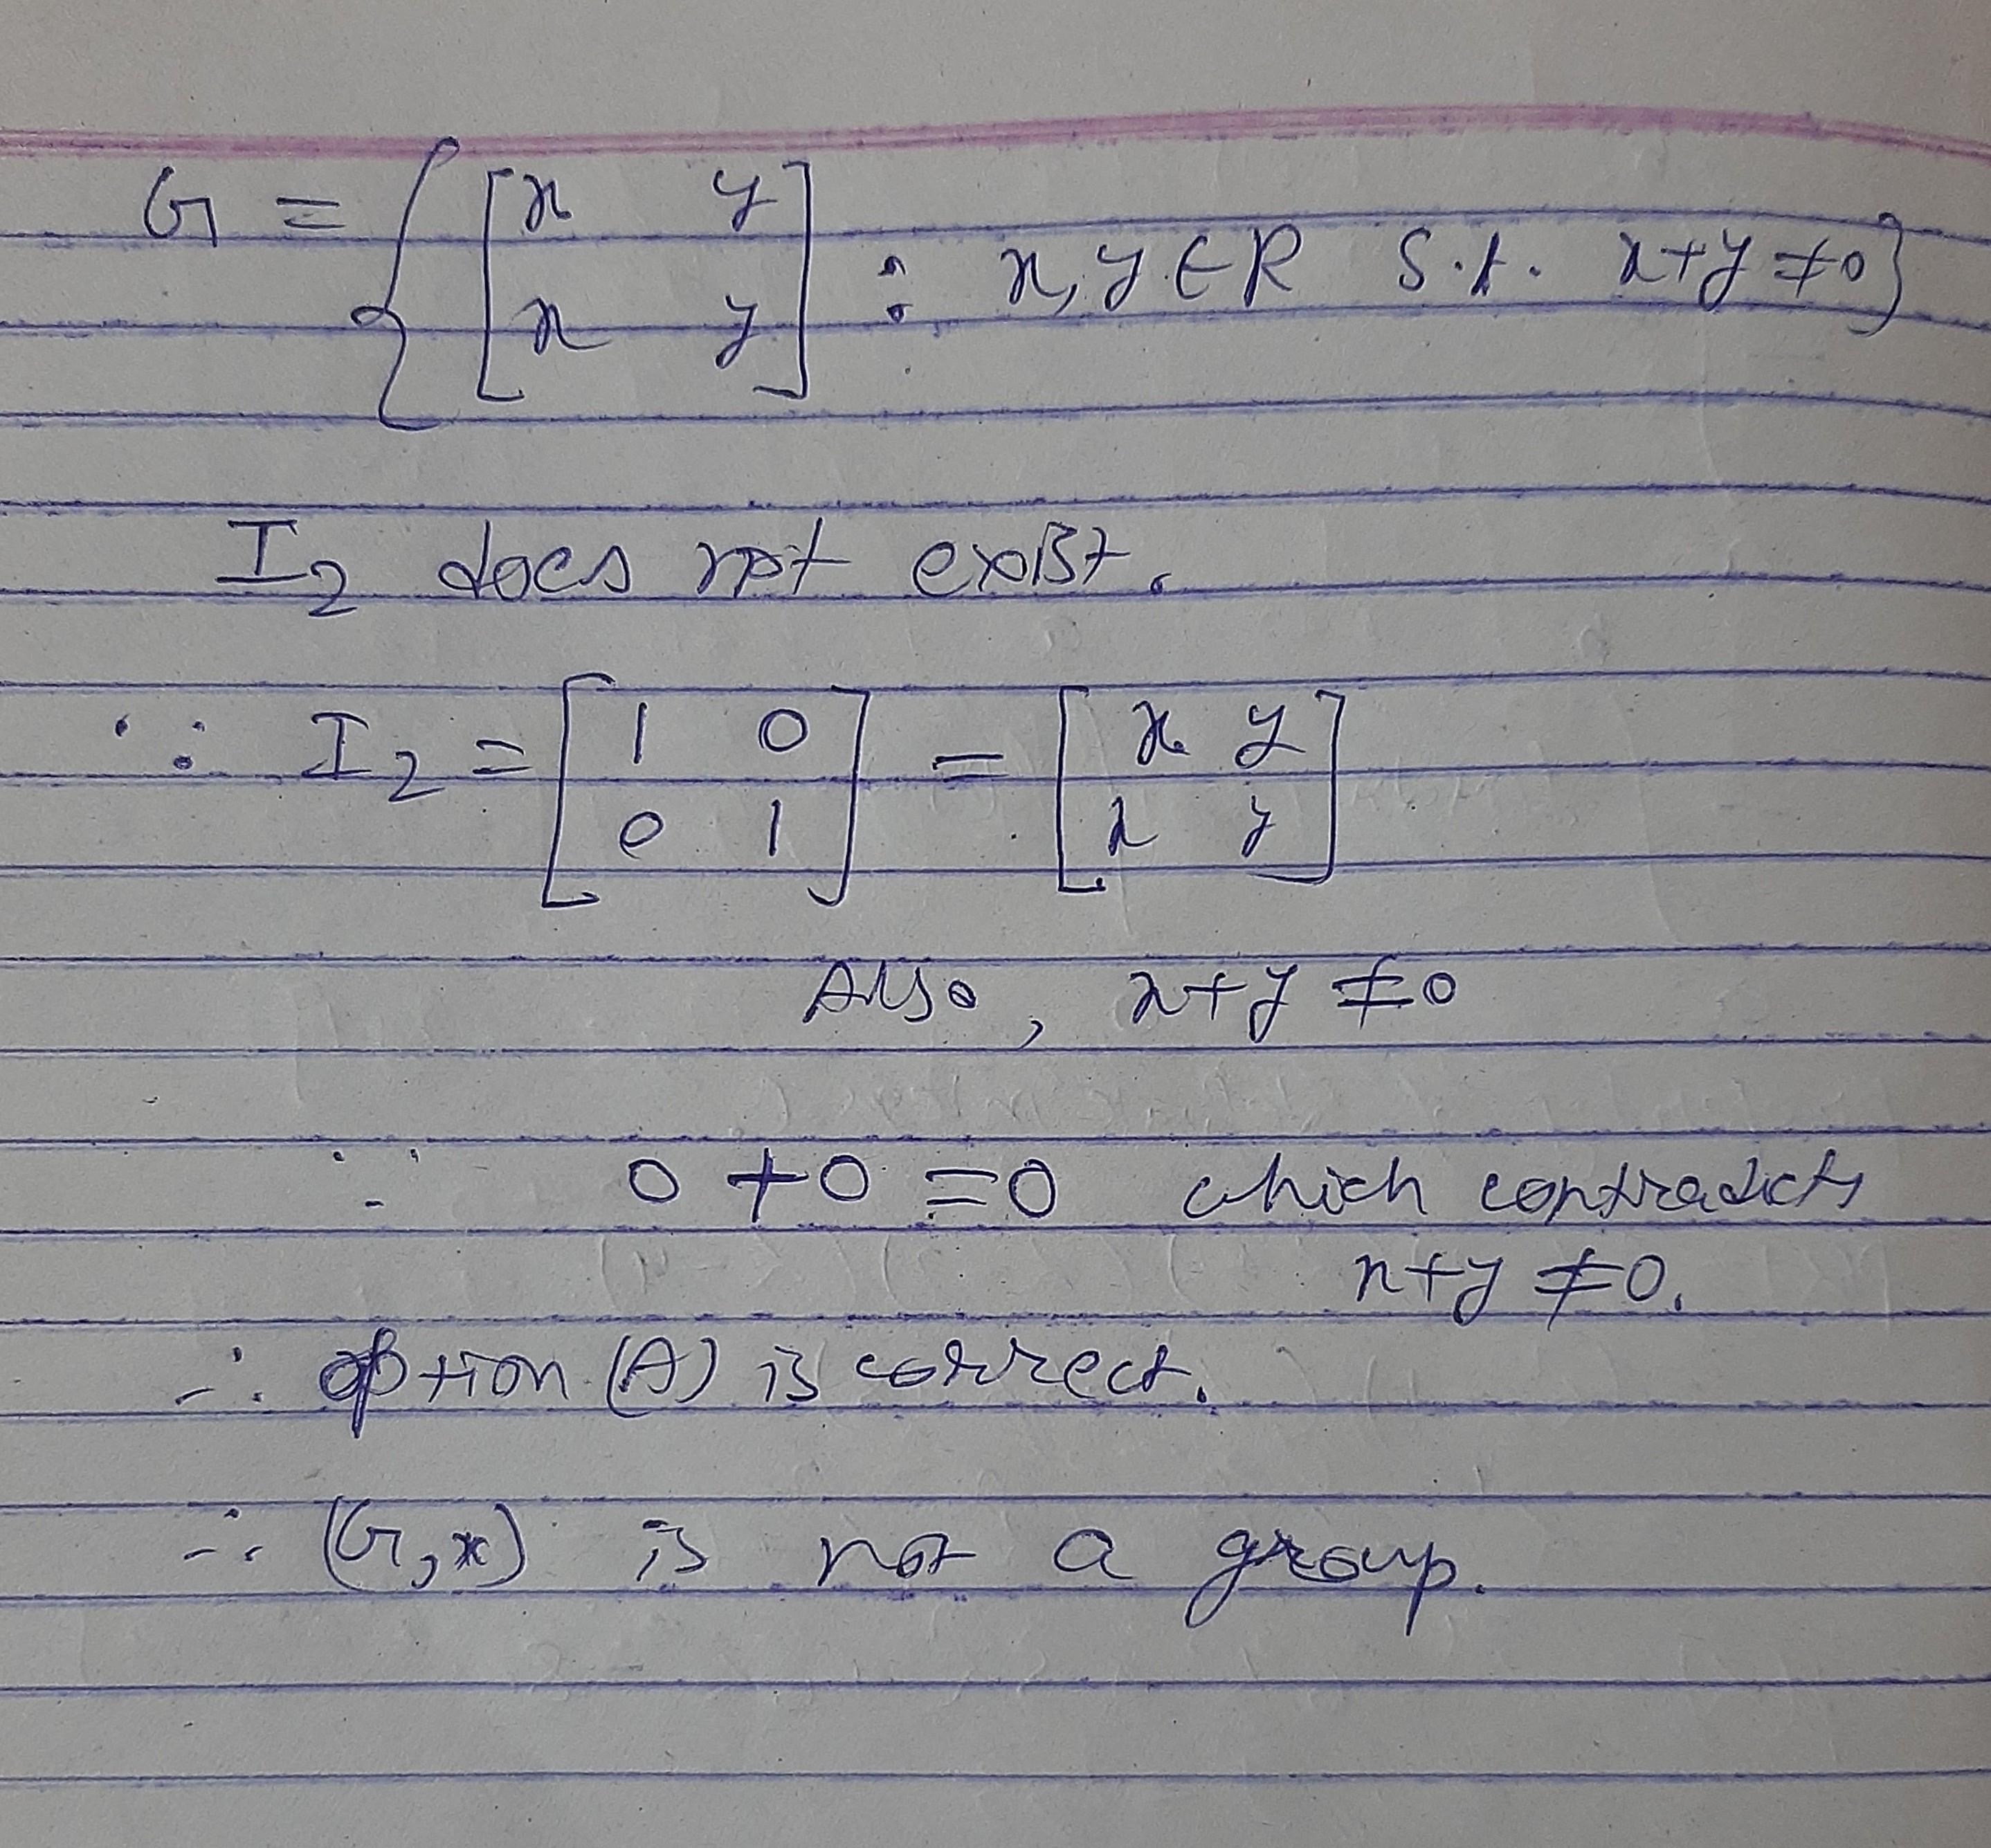 G = { [ x y
x y ] : x, y ∈ R s.t. x+y ≠ 0 }
I₂ does not exist.
∵ I₂ = [ 1 0
0 1 ] = [ x y
x y ]
Also, x+y ≠ 0
∵ 0 + 0 = 0 which contradicts
x+y ≠ 0.
∴ option (A) is correct.
∴ (G, *) is not a group.